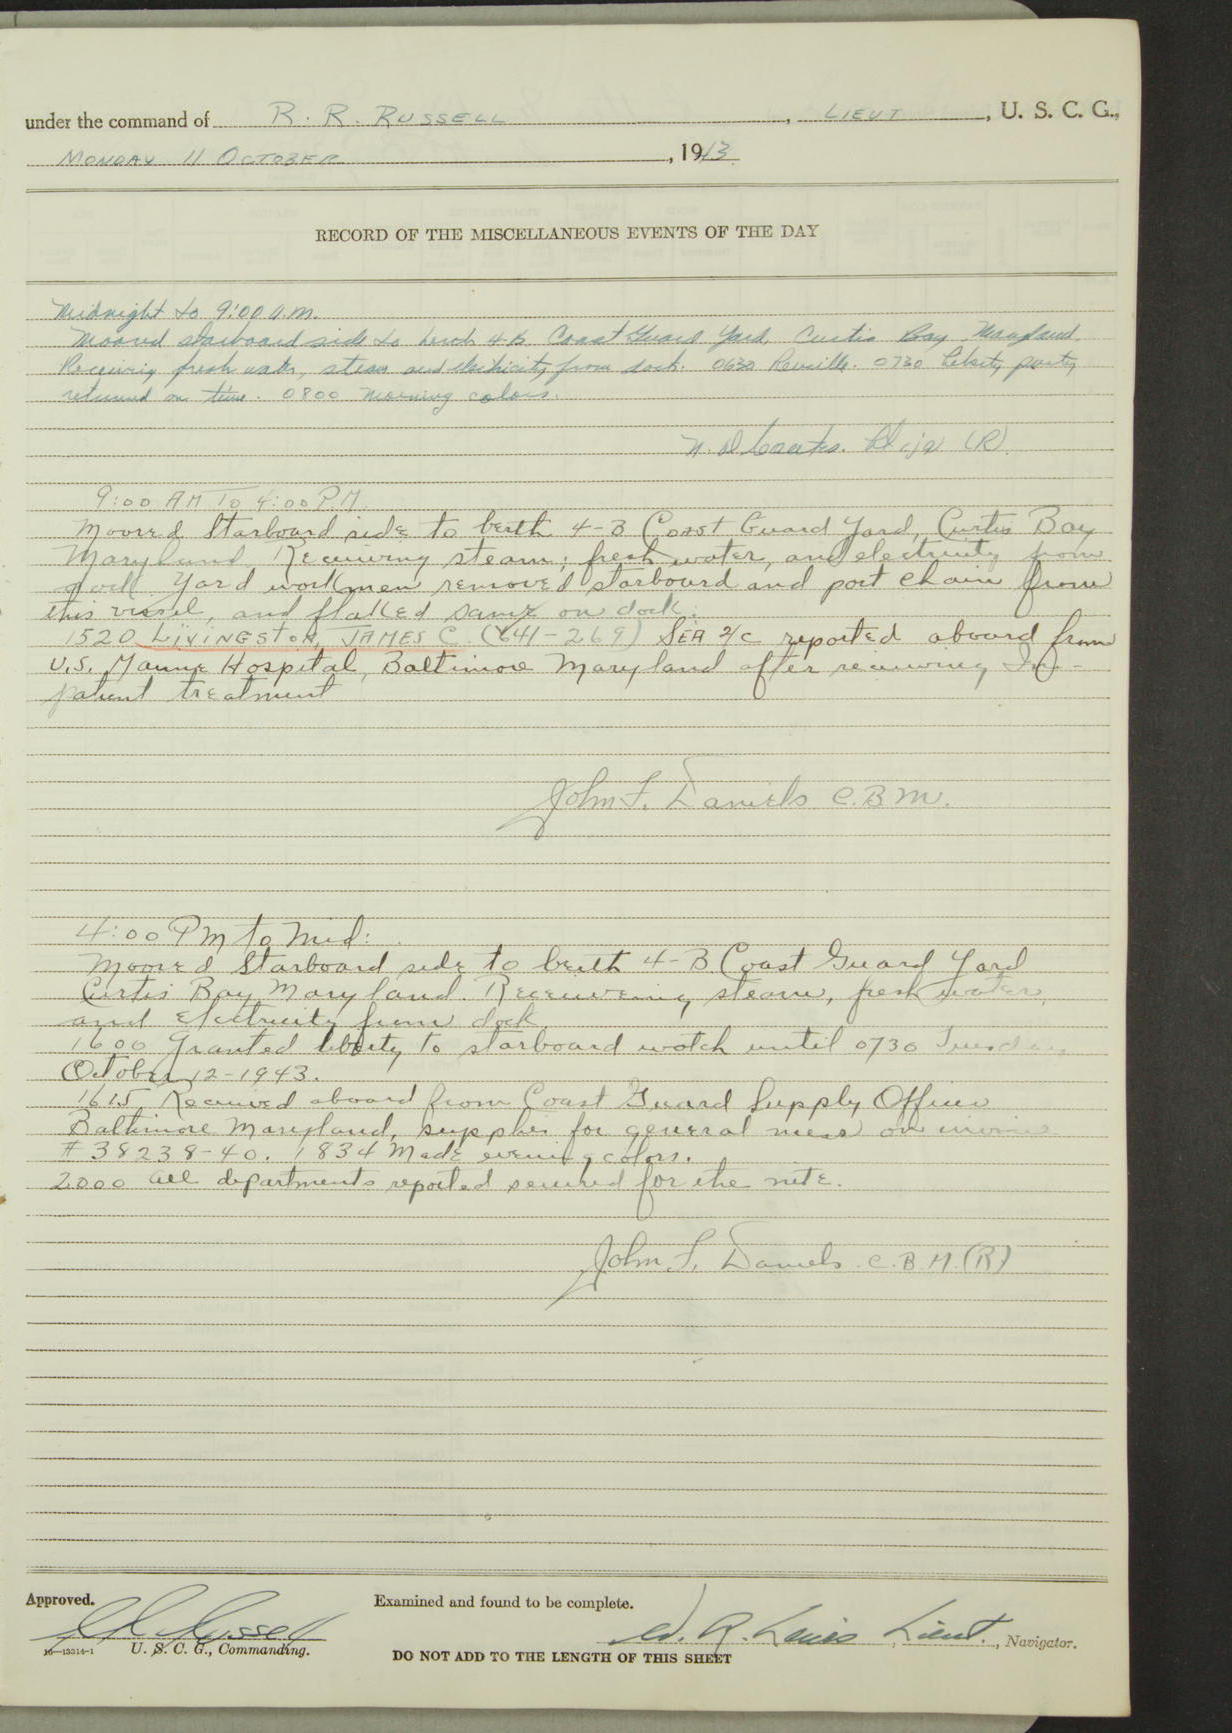 under the command of R. R. RUSSELL, LIEUT, U. S. C. G.,
MONDAY 11 OCTOBER, 1943.
RECORD OF THE MISCELLANEOUS EVENTS OF THE DAY
Midnight to 9:00 a.m.
Moored starboard side to berth 4B Coast Guard Yard, Curtis Bay, Maryland.
Receiving fresh water, steam and electricity from dock. 0630 Reveille. 0730 Liberty party
returned on time. 0800 Morning colors.
N. D. Coates. Lt jg (R)
9:00 AM To 4:00 P.M.
Moored Starboard side to berth 4-B Coast Guard Yard, Curtis Bay
Maryland Receiving steam; fresh water, and electricity from
dock. Yard workmen removed starboard and port chain from
this vessel, and flaked same on dock.
1520 LIVINGSTON, JAMES C. (641-269) SEA 2/c reported aboard from
U.S. Marine Hospital, Baltimore Maryland after receiving In-
patient treatment
John F. Daniels C.B.M.
4:00 PM to Mid:
Moored Starboard side to berth 4-B Coast Guard Yard
Curtis Bay Maryland. Receiveing steam, fresh water,
and electricity from dock
1600 Granted liberty to starboard watch until 0730 Tuesday
October 12-1943.
1615 Received aboard from Coast Guard Supply Office
Baltimore Maryland, supplies for general mess on invoice
# 38238-40. 1834 Made evening colors.
2000 all departments reported secured for the nite.
John F. Daniels C.B.M.(R)
Approved. Examined and found to be complete.
R R Russell W. R. Lewis Lieut., Navigator.
16—13314-1 U. S. C. G., Commanding.
DO NOT ADD TO THE LENGTH OF THIS SHEET